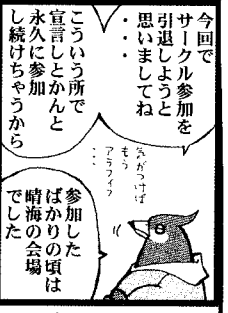 今回で
サークル参加を
引退しようと
思いましてね
・・・・
こういう所で
宣言しとかんと
永久に参加
し続けちゃうから
気がつけば
もう
アラフィフ
・・・
参加した
ばかりの頃は
晴海の会場
でした